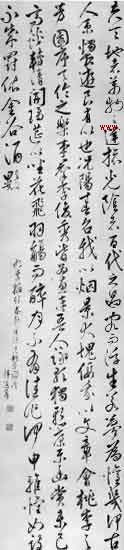 夫天地者萬物之逆旅光陰者百代之過客而浮生若夢為歡幾何古
人秉燭夜遊良有以也況陽春召我以煙景大塊假我以文章會桃李之
芳園序天倫之樂事群季俊秀皆為惠連吾人詠歌獨慚康樂幽賞未已
高談轉清開瓊筵以坐花飛羽觴而醉月不有佳作何伸雅懷如詩
不成罰依金谷酒數